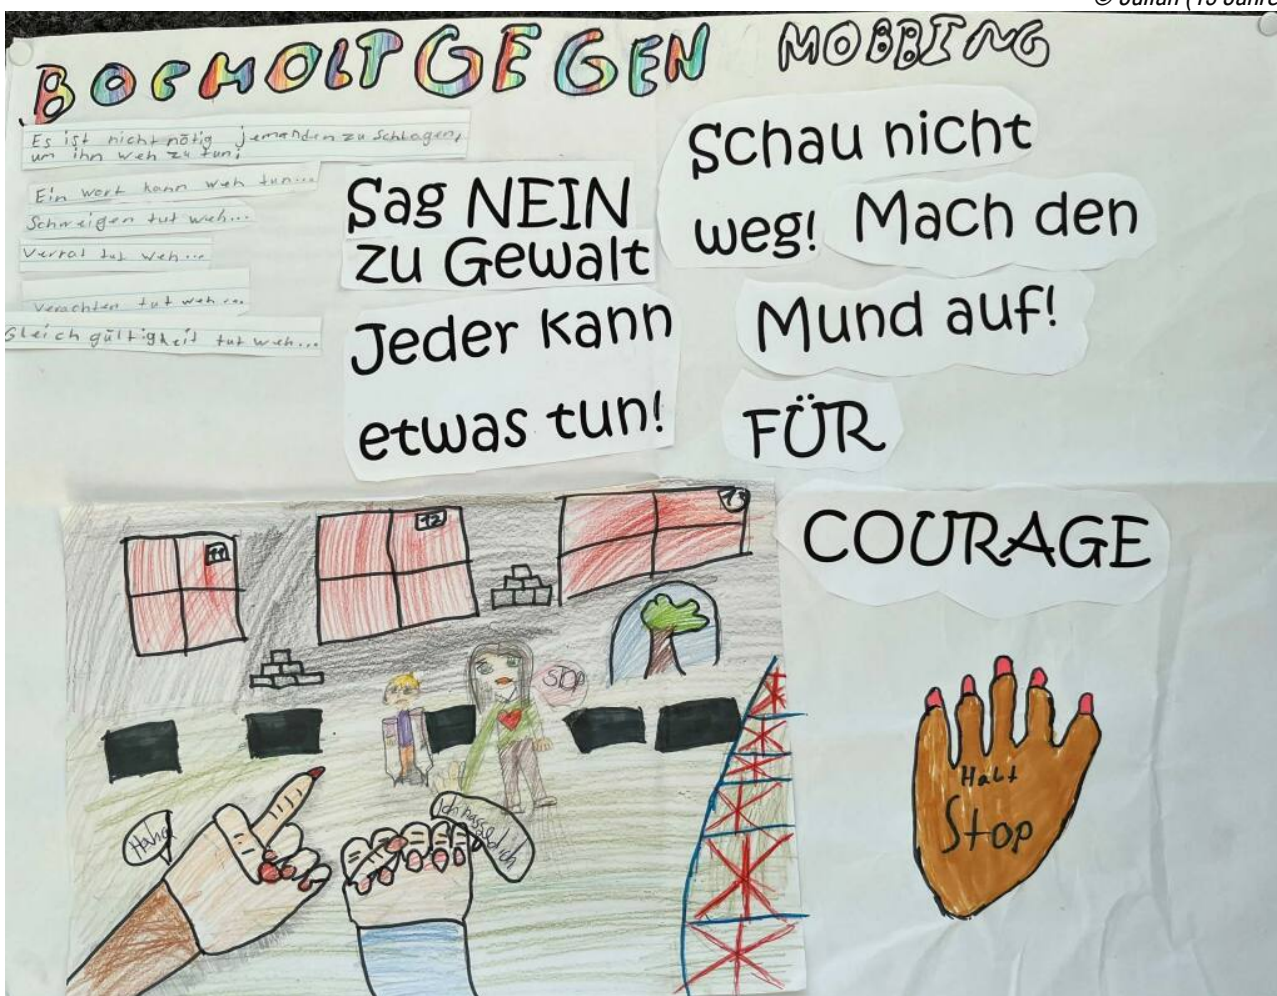 © Julian (13 Jahre
BOCHOLT GEGEN MOBBING
Es ist nicht nötig jemanden zu schlagen,
um ihn weh zu tun;
Ein Wort kann weh tun...
Schweigen tut weh...
Verrat tut weh...
Verachten tut weh...
Gleichgültigkeit tut weh...
Sag NEIN
zu Gewalt
Jeder kann
etwas tun!
Schau nicht
weg! Mach den
Mund auf!
FÜR
COURAGE
11
12
13
STOP
Haha
Ich hasse dich
Halt
Stop